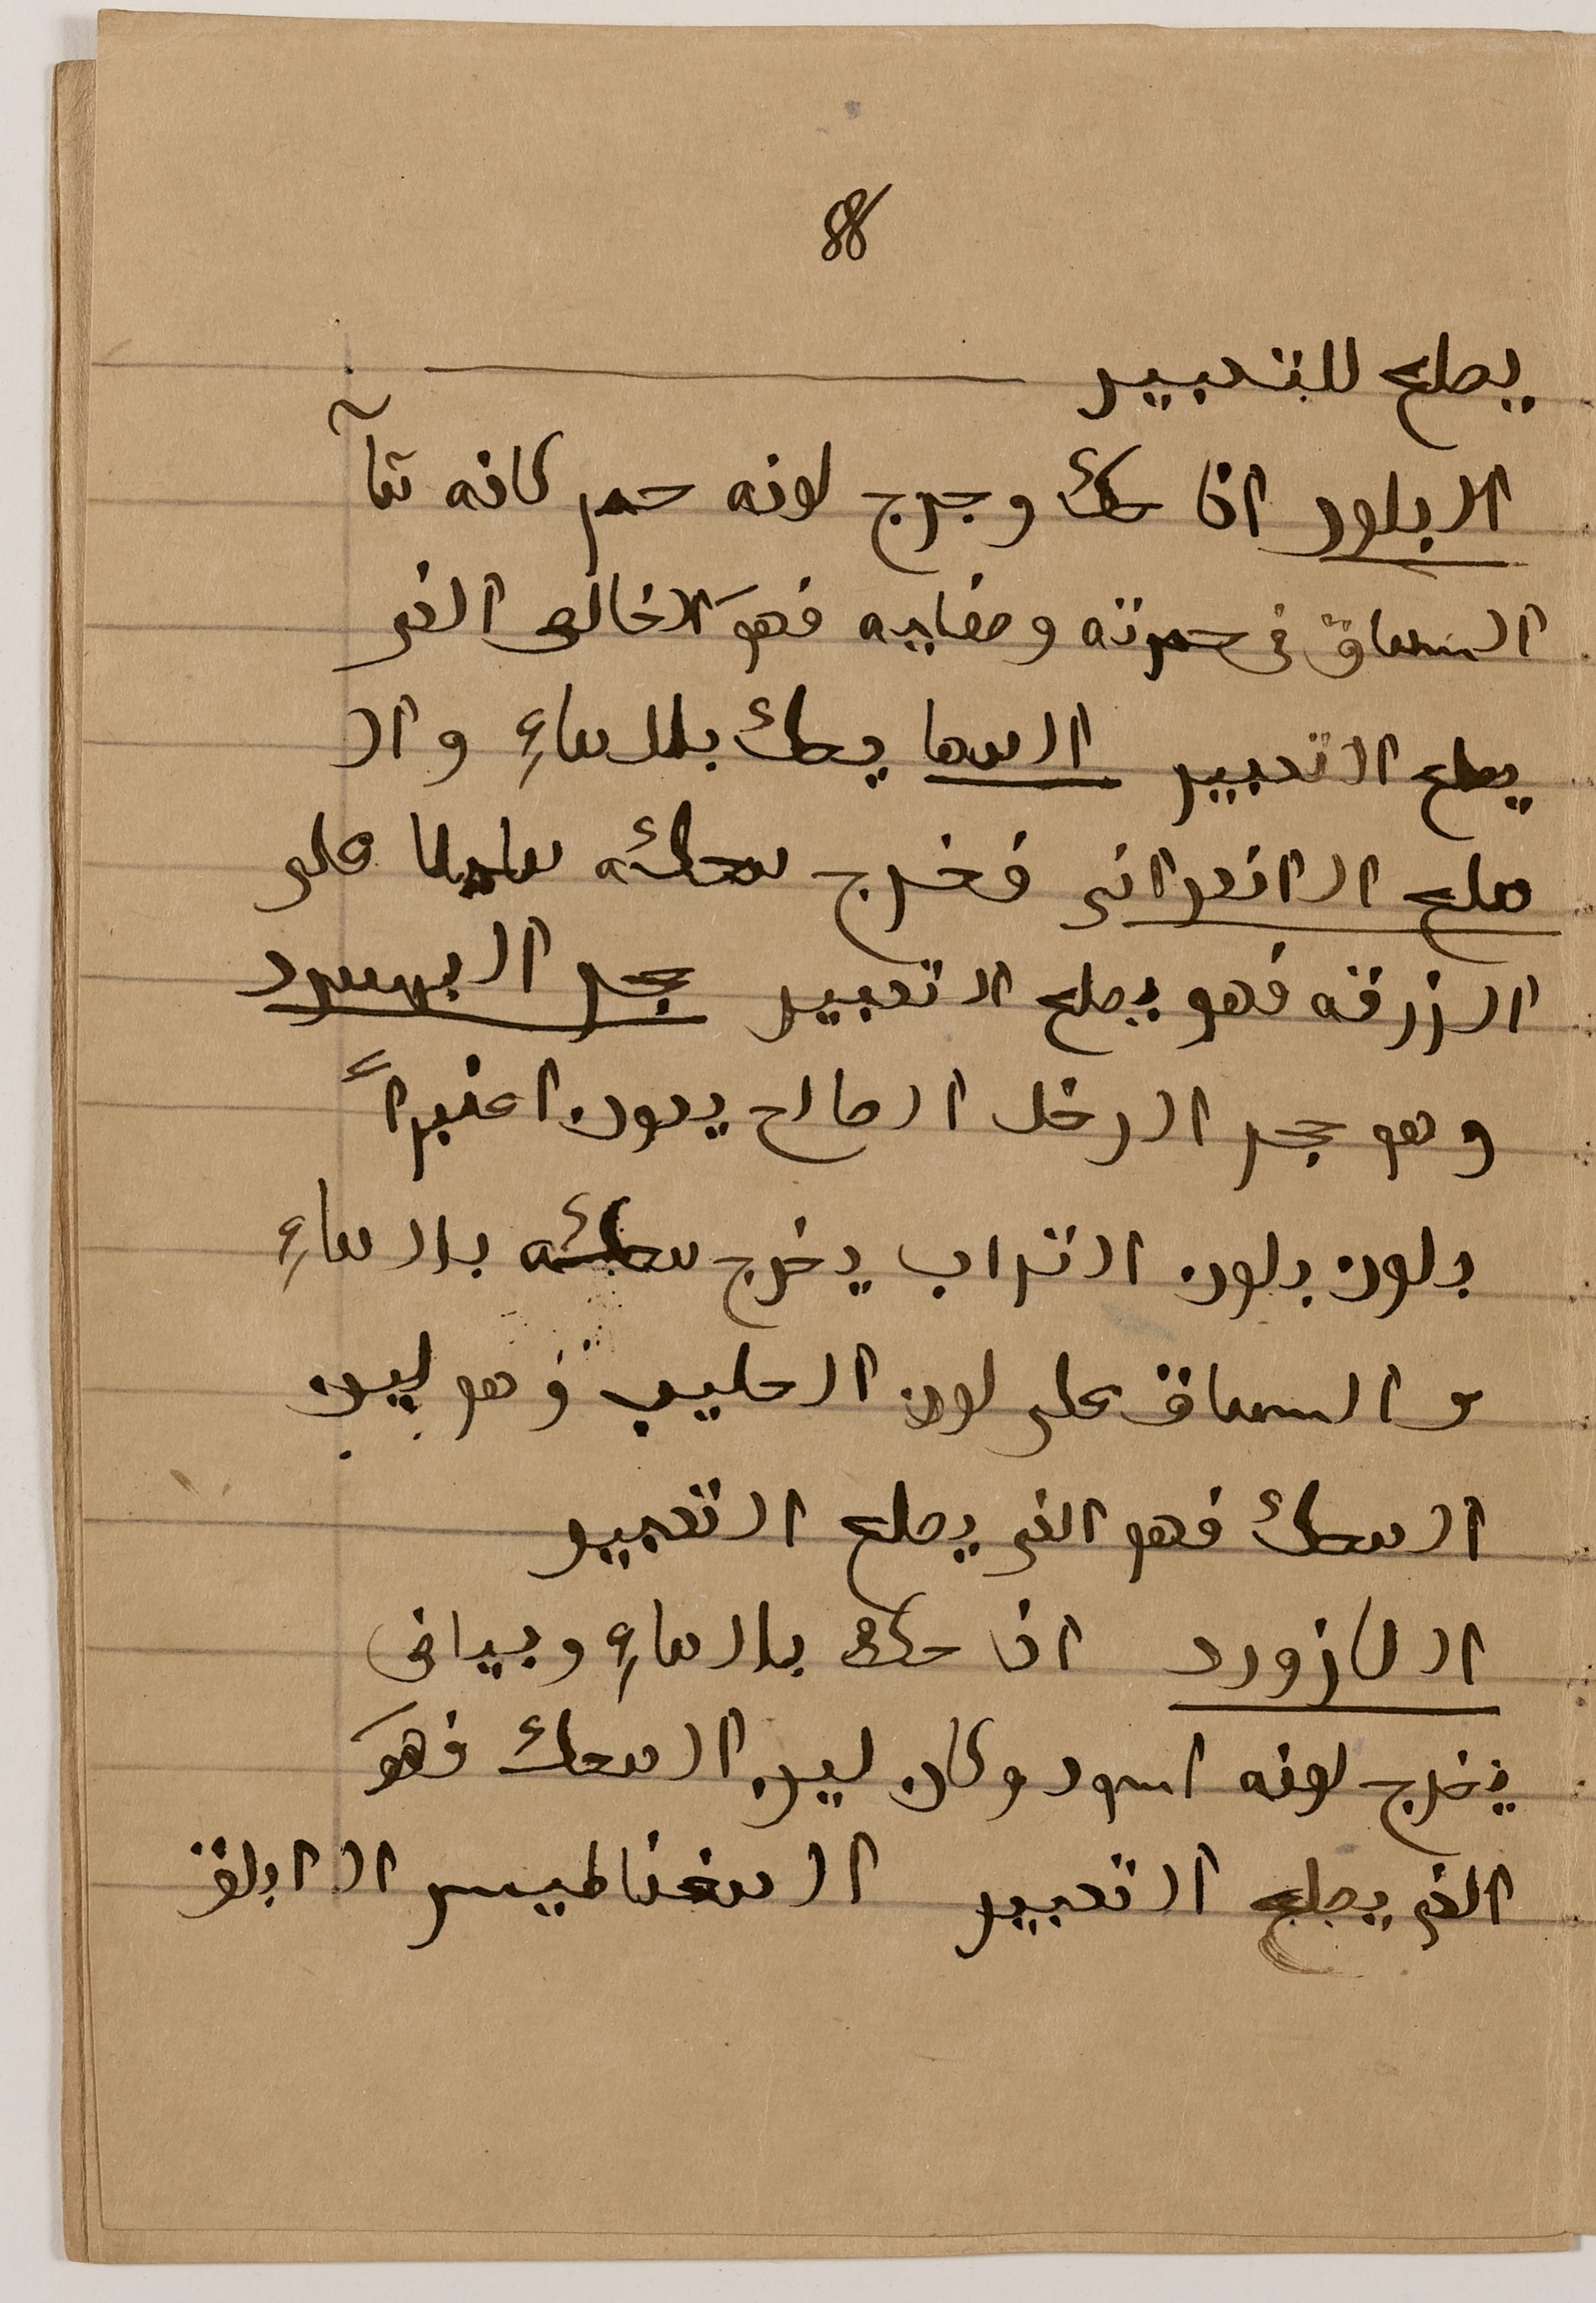 88
يصلح للتدبير
البلور اذا حك وخرج لونه حمر كانه تمآ
السماق فى حمرته وصفايه فهوَ الاخالص الذى
يصلح التدبير المها يحك بالماءِ وال
ملح الاندرانى فخرج محكه مايلا على
الزرقه فهو يصلح التدبير حجر اليهود
وهو حجر الرخل المالح يكون اغبراً
بلون بلون التراب يخرج محكه بالماءِ
و السماق على لون الحليب فهو لين
المحك فهو الذى يصلح التدبير
اللازورد اذا حك بالماءِ وبيداف
يخرج لونه اسود وكان لين المحك فهوَ
الذى يصلح التدبير المغناطيس الابلق